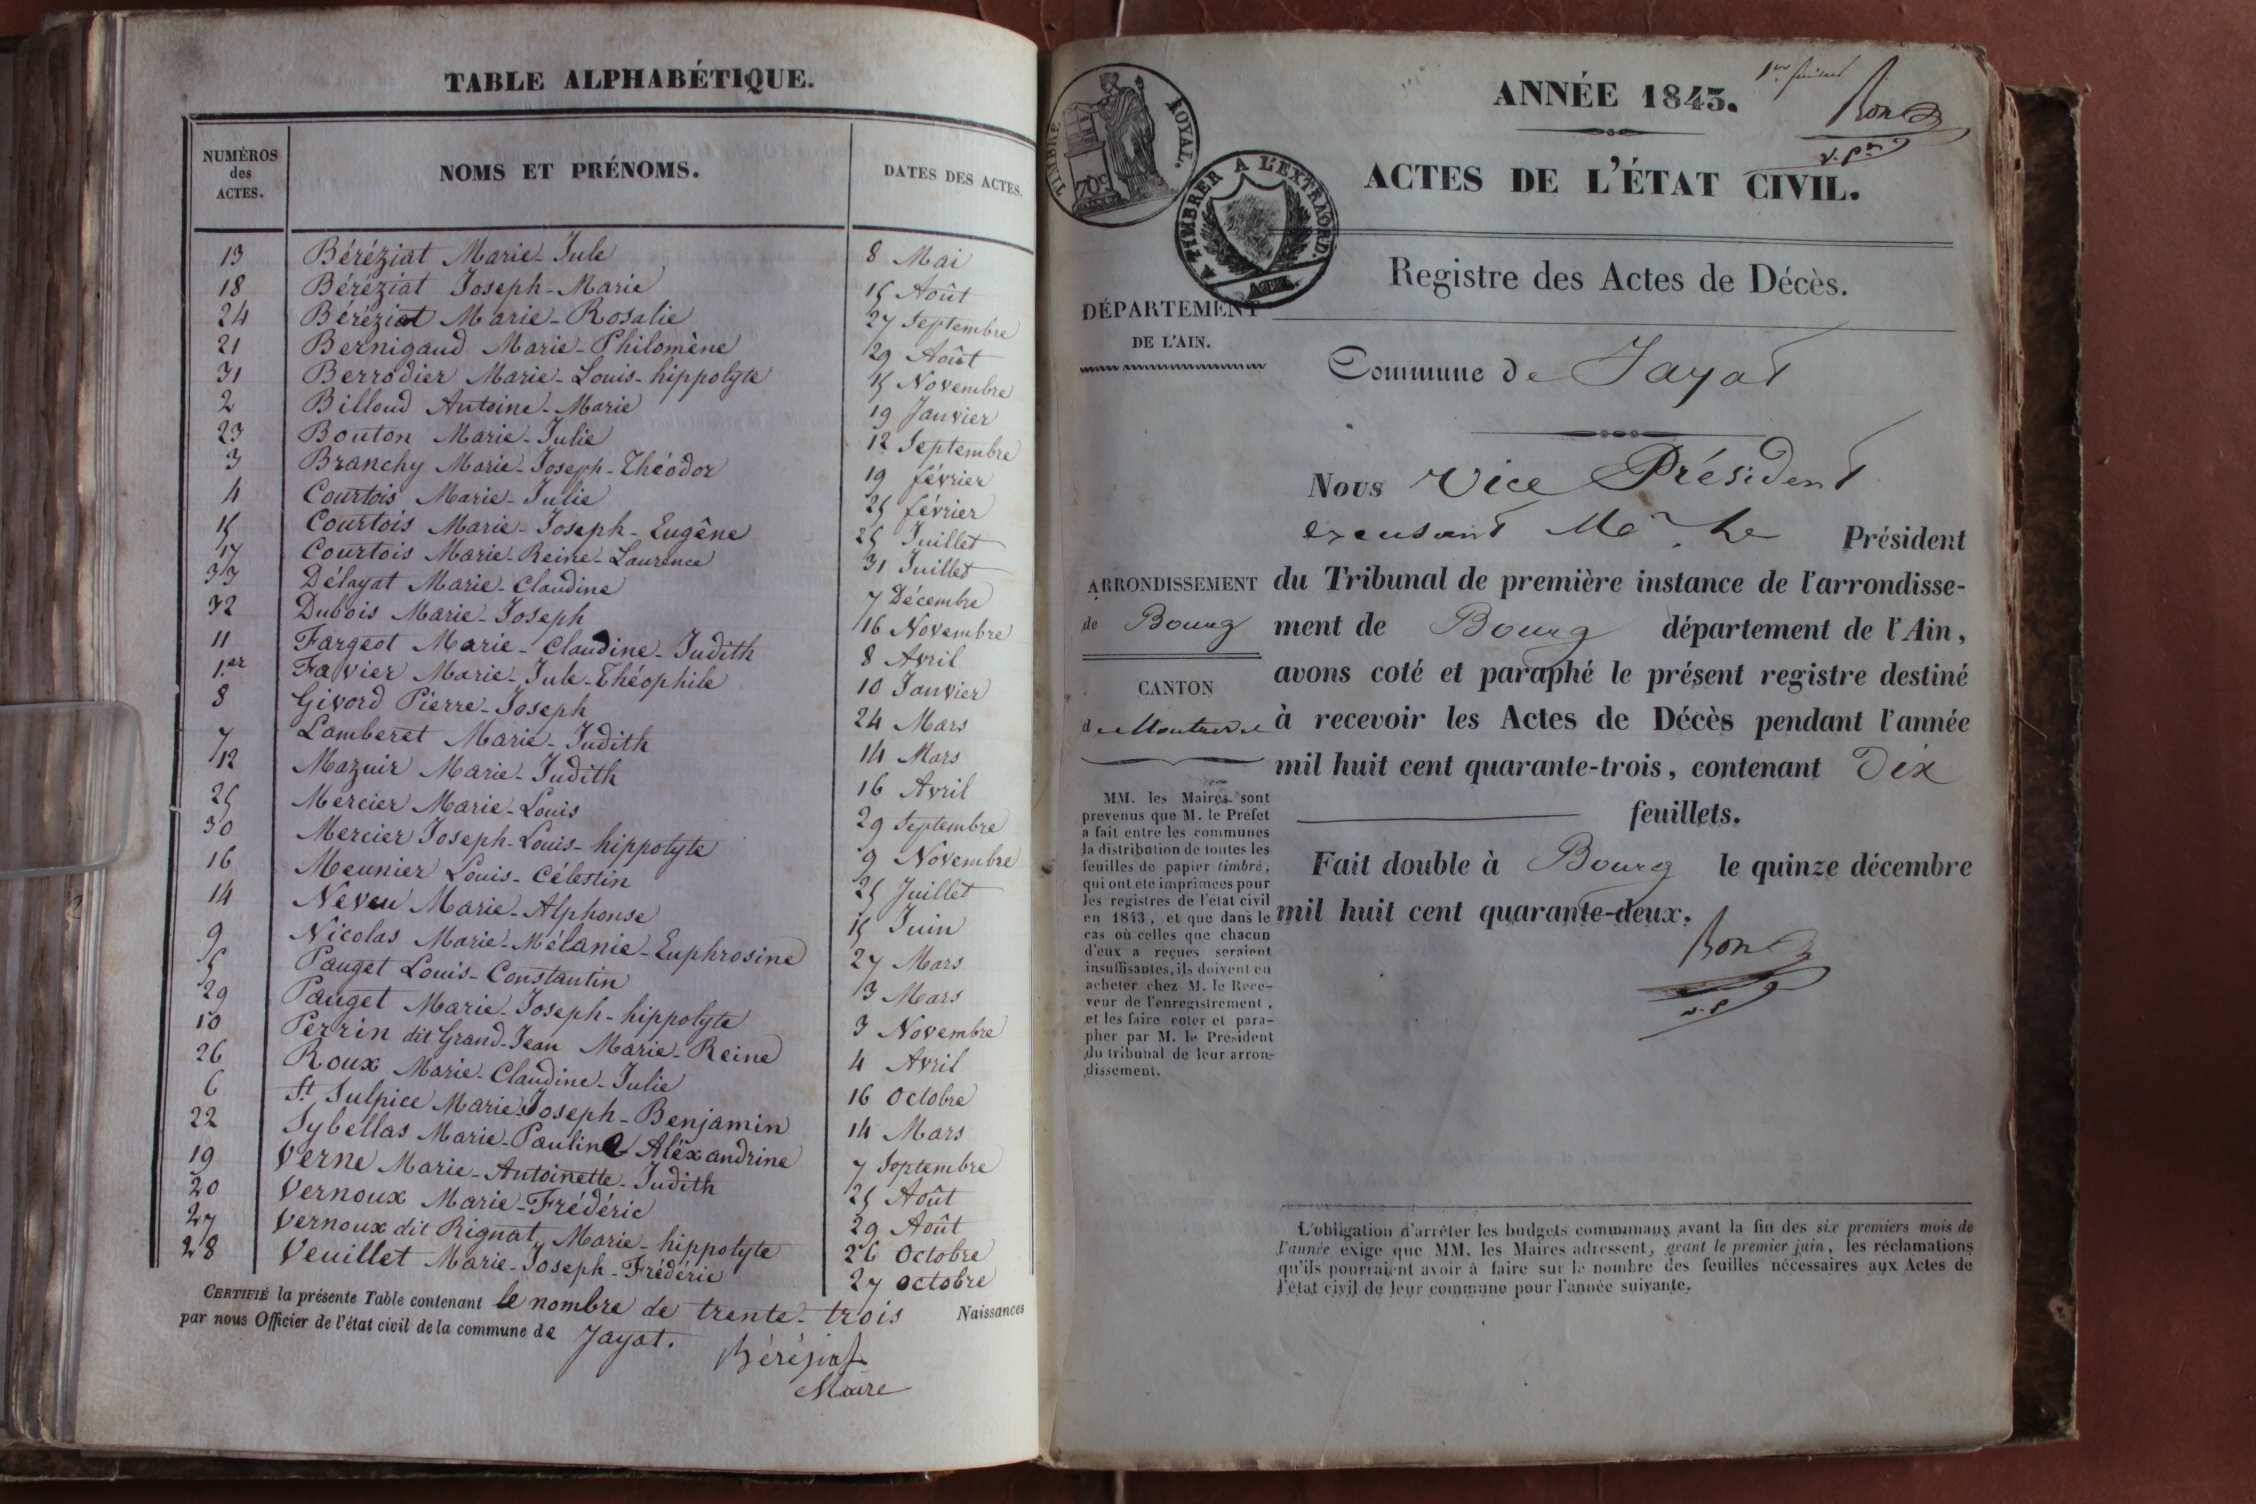 TABLE ALPHABÉTIQUE.
NUMÉROS des ACTES. NOMS ET PRÉNOMS. DATES DES ACTES.
13 Béréziat Marie-Jule 8 Mai
18 Béréziat Joseph-Marie 15 Août
24 Béréziat Marie-Rosalie 27 Septembre
21 Bernigaud Marie-Philomène 29 Août
31 Berrodier Marie-Louis-hippolyte 15 Novembre
2 Billoud Antoine-Marie 19 Janvier
23 Bouton Marie-Julie 12 Septembre
3 Branchy Marie-Joseph-Théodor 19 février
4 Courtois Marie-Julie 25 février
15 Courtois Marie-Joseph-Eugêne 25 Juillet
17 Courtois Marie-Reine-Laurence 31 Juillet
33 Délayat Marie-Claudine 7 Décembre
32 Dubois Marie-Joseph 16 Novembre
11 Fargeot Marie-Claudine-Judith 8 Avril
1.er Favier Marie-Jule-Théophile 10 Janvier
8 Givord Pierre-Joseph 24 Mars
7 Lamberet Marie-Judith 14 Mars
12 Mazuir Marie-Judith 16 Avril
25 Mercier Marie-Louis 29 Septembre
30 Mercier Joseph-Louis-hippolyte 9 Novembre
16 Meunier Louis-Célestin 25 Juillet
14 Neveu Marie-Alphonse 15 Juin
9 Nicolas Marie-Mélanie-Euphrosine 27 Mars
5 Pauget Louis-Constantin 3 Mars
29 Pauget Marie-Joseph-hippolyte 3 Novembre
10 Perrin dit Grand-Jean Marie-Reine 4 Avril
26 Roux Marie-Claudine-Julie 16 Octobre
6 St. Sulpice Marie-Joseph-Benjamin 14 Mars
22 Sybellas Marie-Pauline Aléxandrine 7 Septembre
19 Verne Marie-Antoinette-Judith 25 Août
20 Vernoux Marie-Frédéric 29 Août
27 Vernoux dit Rignat, Marie-hippolyte 26 Octobre
28 Veuillet Marie-Joseph-Frédéric 27 octobre
CERTIFIÉ la présente Table contenant le nombre de trente-trois Naissances
par nous Officier de l'état civil de la commune de Jayat.
Béréziat
Maire
TIMBRE ROYAL.
70c
A TIMBRER A L'EXTRAORD.
AIN.
ANNÉE 1843.
ACTES DE L'ÉTAT CIVIL.
Registre des Actes de Décès.
DÉPARTEMENT
DE L'AIN.
Commune de Jayat
Nous Vice Président
excusant Mr. Le Président
ARRONDISSEMENT
de Bourg
CANTON
de Montrevel
du Tribunal de première instance de l'arrondisse-
ment de Bourg département de l'Ain,
avons coté et paraphé le présent registre destiné
à recevoir les Actes de Décès pendant l'année
mil huit cent quarante-trois, contenant Dix
feuillets.
Fait double à Bourg le quinze décembre
mil huit cent quarante-deux.
v. p.
MM. les Maires sont
prévenus que M. le Préfet
a fait entre les communes
la distribution de toutes les
feuilles de papier timbré,
qui ont été imprimées pour
les registres de l'état civil
en 1843, et que dans le
cas où celles que chacun
d'eux a reçues seraient
insuffisantes, ils doivent en
acheter chez M. le Rece-
veur de l'enregistrement,
et les faire coter et para-
pher par M. le Président
du tribunal de leur arron-
dissement.
L'obligation d'arrêter les budgets communaux avant la fin des six premiers mois de
l'année exige que MM. les Maires adressent, avant le premier juin, les réclamations
qu'ils pourraient avoir à faire sur le nombre des feuilles nécessaires aux Actes de
l'état civil de leur commune pour l'année suivante.